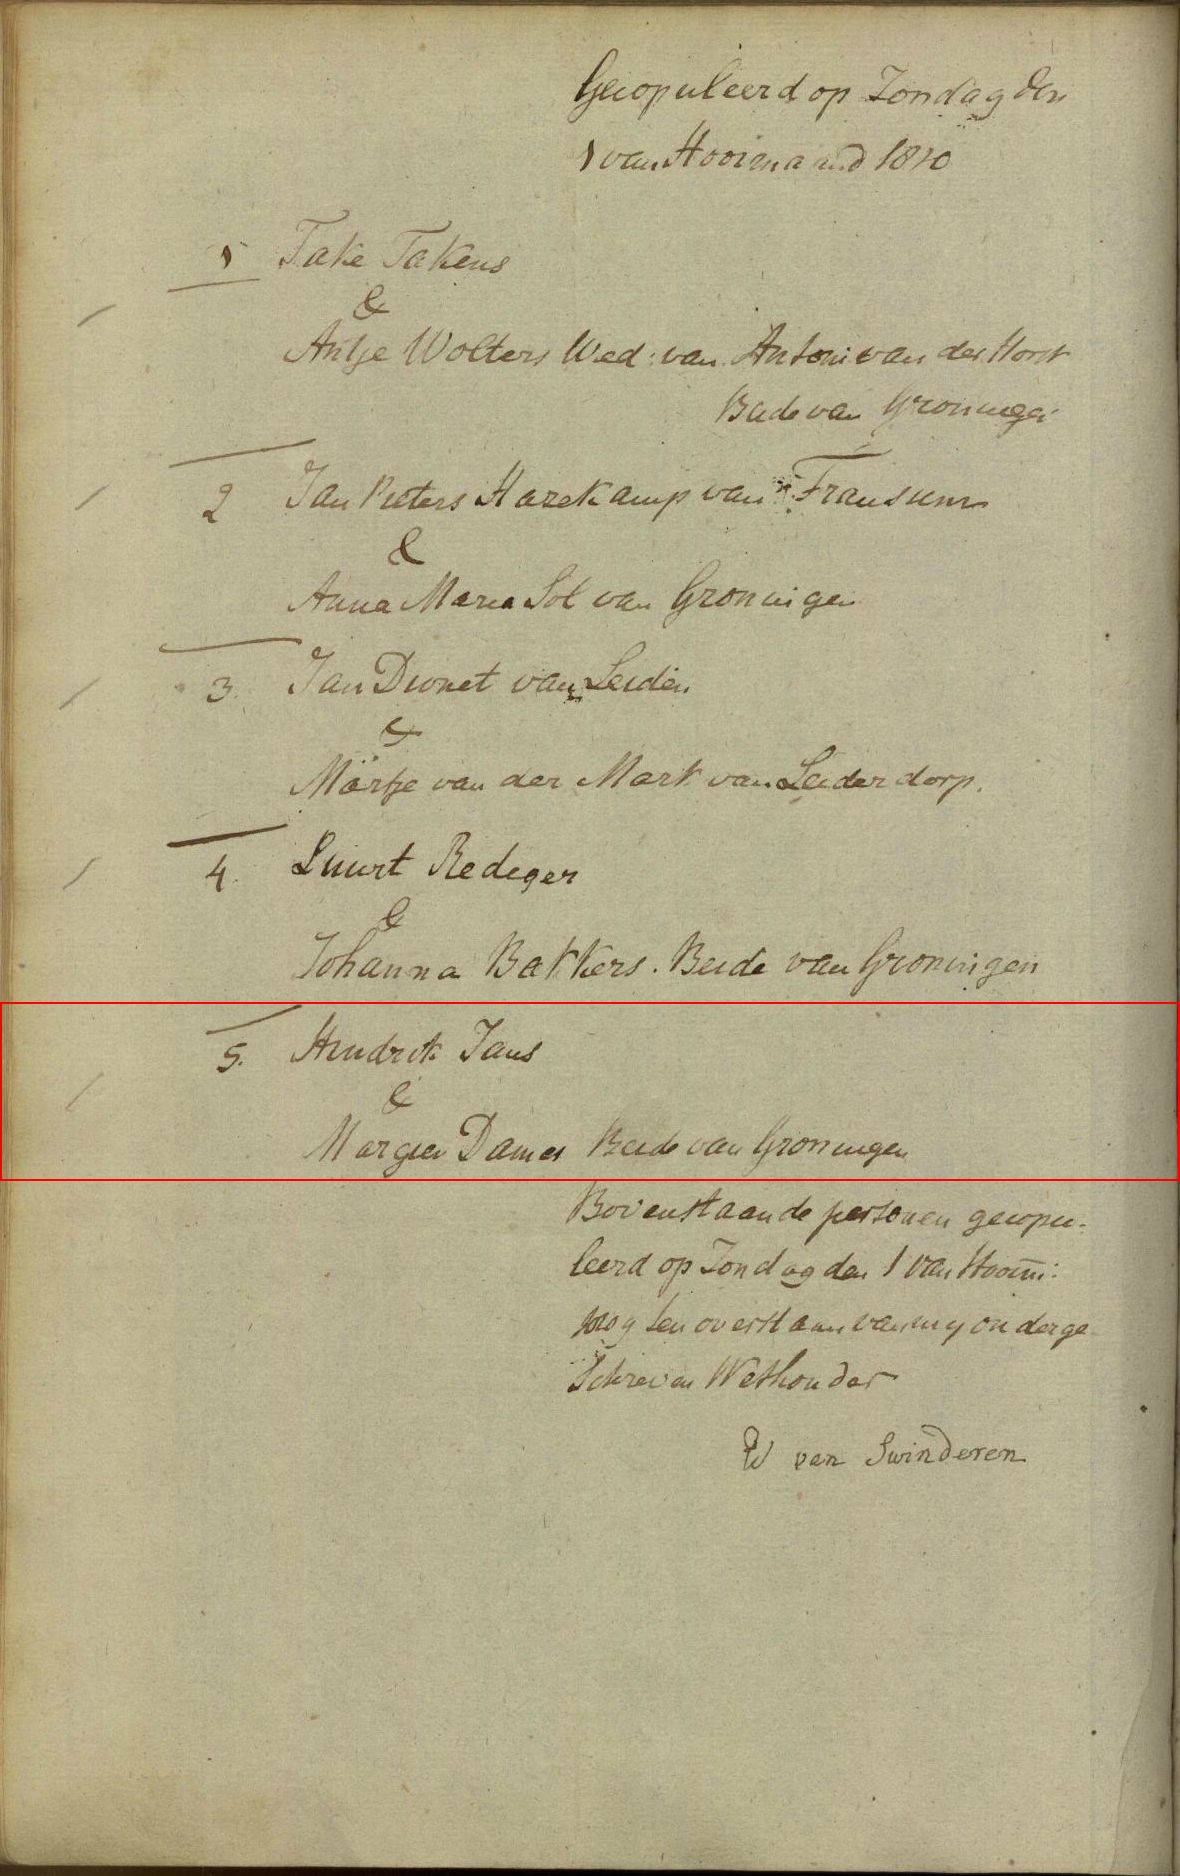 Gecopuleerd op Zondag den
1 van Hooimaand 1810
1 Take Takens
&
Antje Wolters Wed: van Antoni van der Horst
Beide van Groningen
2 Jan Pieters Hazekamp van Fransum
&
Anna Maria Sol van Groningen
3. Jan Dionet van Leiden
&
Martje van der Mark van Leiderdorp.
4. Luurt Rediger
&
Johanna Bakkers. Beide van Groningen
5. Hendrik Jans
&
Margien Dames Beide van Groningen
Bovenstaande personen gecopu:
leerd op Zondag den 1 van Hooim:
1810 ten overstaan van my onderge
Schreven Wethouder
W van Swinderen